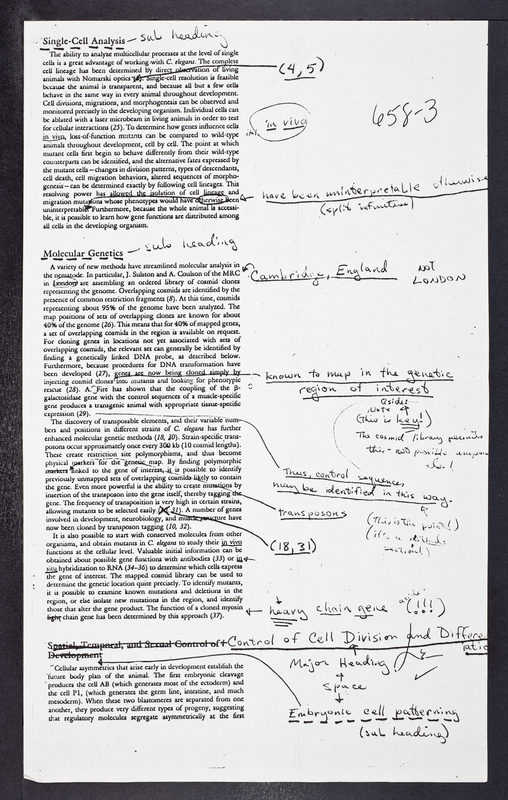 Single-Cell Analysis – sub heading
The ability to analyze multicellular processes at the level of single
cells is a great advantage of working with C. elegans. The complete
cell lineage has been determined by direct observation of living
animals with Nomarski optics (4). Single-cell resolution is feasible
(4,5)
because the animal is transparent, and because all but a few cells
behave in the same way in every animal throughout development.
Cell divisions, migrations, and morphogenesis can be observed and
monitored precisely in the developing organism. Individual cells can
658-3
be ablated with a laser microbeam in living animals in order to test
for cellular interactions (25). To determine how genes influence cells
in vivo
in vivo, loss-of-function mutants can be compared to wild-type
animals throughout development, cell by cell. The point at which
mutant cells first begin to behave differently from their wild-type
counterparts can be identified, and the alternative fates expressed by
the mutant cells – changes in division patterns, types of descendants,
cell death, cell migration behaviors, altered sequences of morpho-
genesis – can be determined exactly by following cell lineages. This
resolving power has allowed the isolation of cell lineage and
migration mutations whose phenotypes would have otherwise been
have been uninterpretable otherwise
(split infinitive)
uninterpretable. Furthermore, because the whole animal is accessi-
ble, it is possible to learn how gene functions are distributed among
all cells in the developing organism.
Molecular Genetics – sub heading
A variety of new methods have streamlined molecular analysis in
the nematode. In particular, J. Sulston and A. Coulson of the MRC
Cambridge, England
NOT
LONDON
in London are assembling an ordered library of cosmid clones
representing the genome. Overlapping cosmids are identified by the
presence of common restriction fragments (8). At this time, cosmids
representing about 95% of the genome have been analyzed. The
map positions of sets of overlapping clones are known for about
40% of the genome (26). This means that for 40% of mapped genes,
a set of overlapping cosmids in the region is available on request.
For cloning genes in locations not yet associated with sets of
overlapping cosmids, the relevant set can generally be identified by
finding a genetically linked DNA probe, as described below.
Furthermore, because procedures for DNA transformation have
been developed (27), genes are now being cloned simply by
known to map in the genetic
region of interest
injecting cosmid clones into mutants and looking for phenotypic
rescue (28). A. Fire has shown that the coupling of the β-
galactosidase gene with the control sequences of a muscle-specific
gene produces a transgenic animal with appropriate tissue-specific
expression (29).
(This is key!)
The cosmid library
this - not possible
Thus, control sequences
may be identified in this way.
The discovery of transposable elements, and their variable num-
bers and positions in different strains of C. elegans has further
enhanced molecular genetic methods (18, 30). Strain-specific trans-
posons occur approximately once every 300 kb (10 cosmid lengths).
These create restriction site polymorphisms, and thus become
physical markers for the genetic map. By finding polymorphic
markers linked to the gene of interest, it is possible to identify
previously unmapped sets of overlapping cosmids likely to contain
the gene. Even more powerful is the ability to create mutations by
insertion of the transposon into the gene itself, thereby tagging the
gene. The frequency of transposition is very high in certain strains,
transposons
(This is the point!)
allowing mutants to be selected easily (30, 31). A number of genes
involved in development, neurobiology, and muscle structure have
now been cloned by transposon tagging (10, 32).
(18,31)
It is also possible to start with conserved molecules from other
organisms, and obtain mutants in C. elegans to study their in vivo
functions at the cellular level. Valuable initial information can be
obtained about possible gene functions with antibodies (33) or in
situ hybridization to RNA (34–36) to determine which cells express
the gene of interest. The mapped cosmid library can be used to
determine the genetic location quite precisely. To identify mutants,
it is possible to examine known mutations and deletions in the
region, or else isolate new mutations in the region, and identify
those that alter the gene product. The function of a cloned myosin
light chain gene has been determined by this approach (37).
heavy chain gene (!!!)
Spatial, Temporal, and Sexual Control of
Development
Control of Cell Division and Differe
Major Heading
Space
Embryonic cell patterning
(sub heading)
Cellular asymmetries that arise early in development establish the
future body plan of the animal. The first embryonic cleavage
produces the cell AB (which generates most of the ectoderm) and
the cell P1, (which generates the germ line, intestine, and much
mesoderm). When these two blastomeres are separated from one
another, they produce very different types of progeny, suggesting
that regulatory molecules segregate asymmetrically at the first